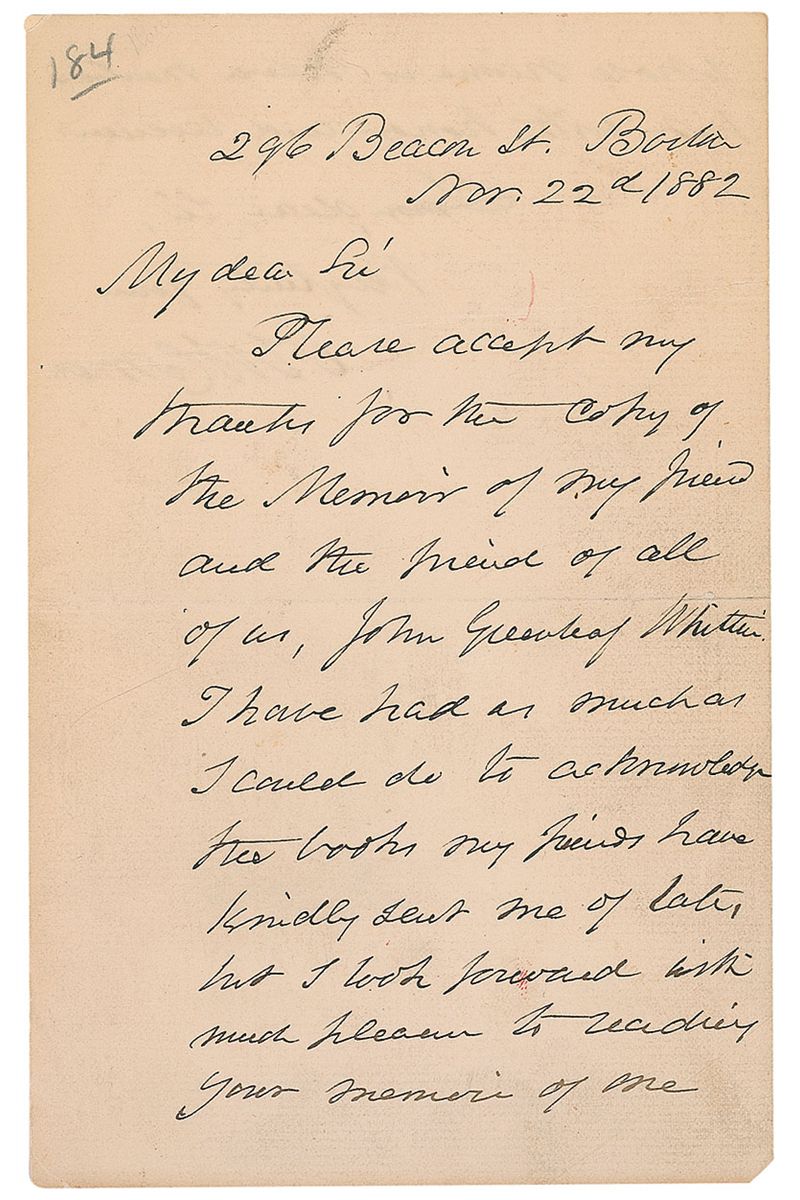 184
296 Beacon St. Boston
Nov. 22d 1882
My dear Sir
Please accept my
thanks for the copy of
the Memoir of my friend
and the friend of all
of us, John Greenleaf Whittier.
I have had as much as
I could do to acknowledge
the books my friends have
kindly sent me of late,
but I look forward with
much pleasure to reading
your memoir of one